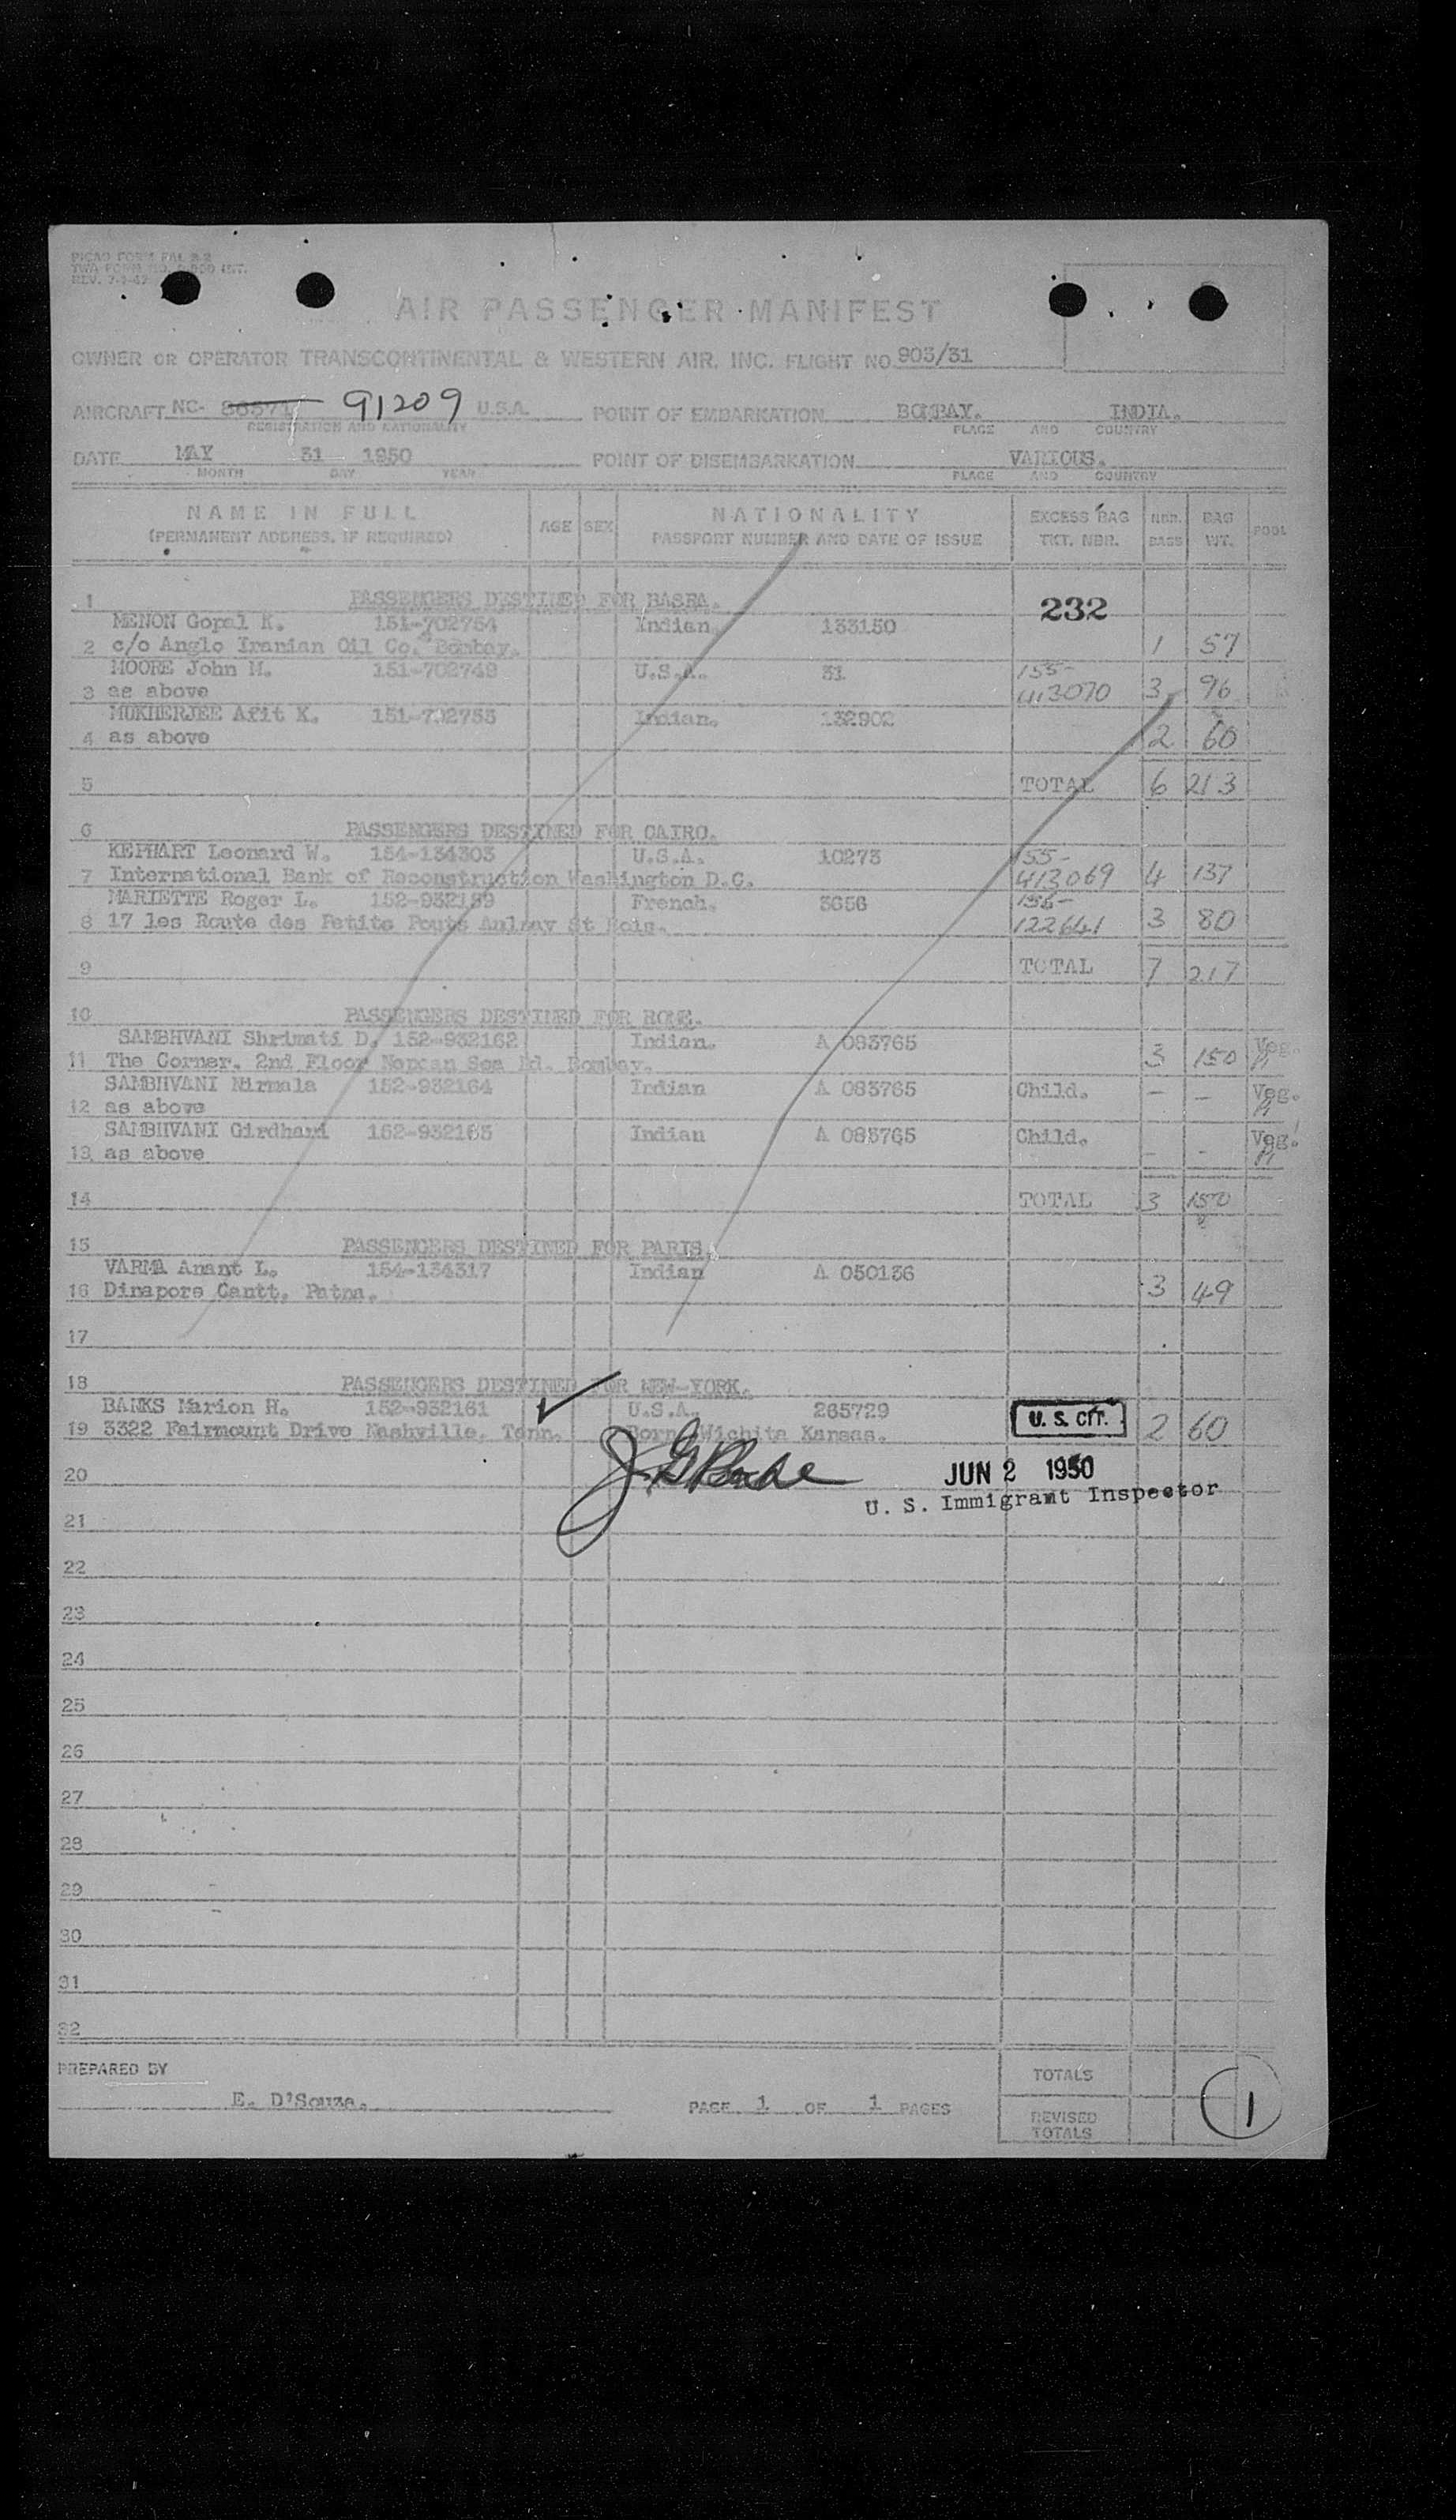 PICAO FORM PAL 2-2
TWA FORM NO. 000 INT.
REV. 7-1-47
AIR PASSENGER MANIFEST
OWNER OR OPERATOR TRANSCONTINENTAL & WESTERN AIR, INC. FLIGHT NO 903/31
AIRCRAFT NC- 86571 91209 U.S.A. POINT OF EMBARKATION BOMBAY. INDIA.
REGISTRATION AND NATIONALITY PLACE AND COUNTRY
DATE MAY 31 1950 POINT OF DISEMBARKATION VARIOUS.
MONTH DAY YEAR PLACE AND COUNTRY
NAME IN FULL AGE SEX NATIONALITY EXCESS BAG NBR. BAG POOL
(PERMANENT ADDRESS, IF REQUIRED) PASSPORT NUMBER AND DATE OF ISSUE TKT. NBR. BAGS WT.
1 PASSENGERS DESTINED FOR BASRA. 232
MENON Gopal K. 151-702754 Indian 133150
2 c/o Anglo Iranian Oil Co. Bombay. 1 57
MOORE John M. 151-702749 U.S.A. 31 155-
3 as above 413070 3 96
MUKHERJEE Afit K. 151-702753 Indian. 132902
4 as above 2 60
5 TOTAL 6 213
6 PASSENGERS DESTINED FOR CAIRO.
KEPHART Leonard W. 154-134303 U.S.A. 10273 155-
7 International Bank of Reconstruction Washington D.C. 413069 4 137
MARIETTE Roger L. 152-932159 French. 3656 156-
8 17 les Route des Petits Ponts Aulnay St Bois. 122641 3 80
9 TOTAL 7 217
10 PASSENGERS DESTINED FOR ROME.
SAMBHVANI Shrimati D. 152-932162 Indian. A 083765 Veg.
11 The Corner. 2nd Floor Nepean Sea Rd. Bombay. 3 150
SAMBHVANI Nirmala 152-932164 Indian A 083765 Child. - - Veg.
12 as above
SAMBHVANI Girdhari 152-932163 Indian A 083765 Child. Veg.
13 as above - -
14 TOTAL 3 150
15 PASSENGERS DESTINED FOR PARIS.
VARMA Anant L. 154-134317 Indian A 050136
16 Dinapore Cantt. Patna. 3 49
17
18 PASSENGERS DESTINED FOR NEW-YORK.
BANKS Marion H. 152-932161 U.S.A. 265729 U. S. CIT.
19 3322 Fairmount Drive Nashville, Tenn. Born Wichita Kansas. 2 60
20 JUN 2 1950
U. S. Immigrant Inspector
21
22
23
24
25
26
27
28
29
30
31
32
PREPARED BY TOTALS
E. D'Souza. PAGE 1 OF 1 PAGES REVISED
TOTALS
1